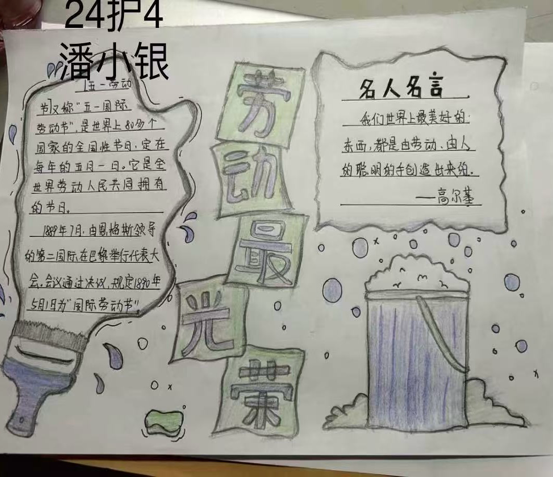 24护4
潘小银
五一劳动
节又称"五一国际
劳动节",是世界上80多个
国家的全国性节日,定在
每年的五月一日。它是全
世界劳动人民共同拥有
的节日。
1889年7月,由恩格斯领导
的第二国际在巴黎举行代表大
会,会议通过决议,规定1890年
5月1日为"国际劳动节"。
劳
动
最
光
荣
名人名言
我们世界上最美好的
东西,都是由劳动、由人
的聪明的手创造出来的。
——高尔基